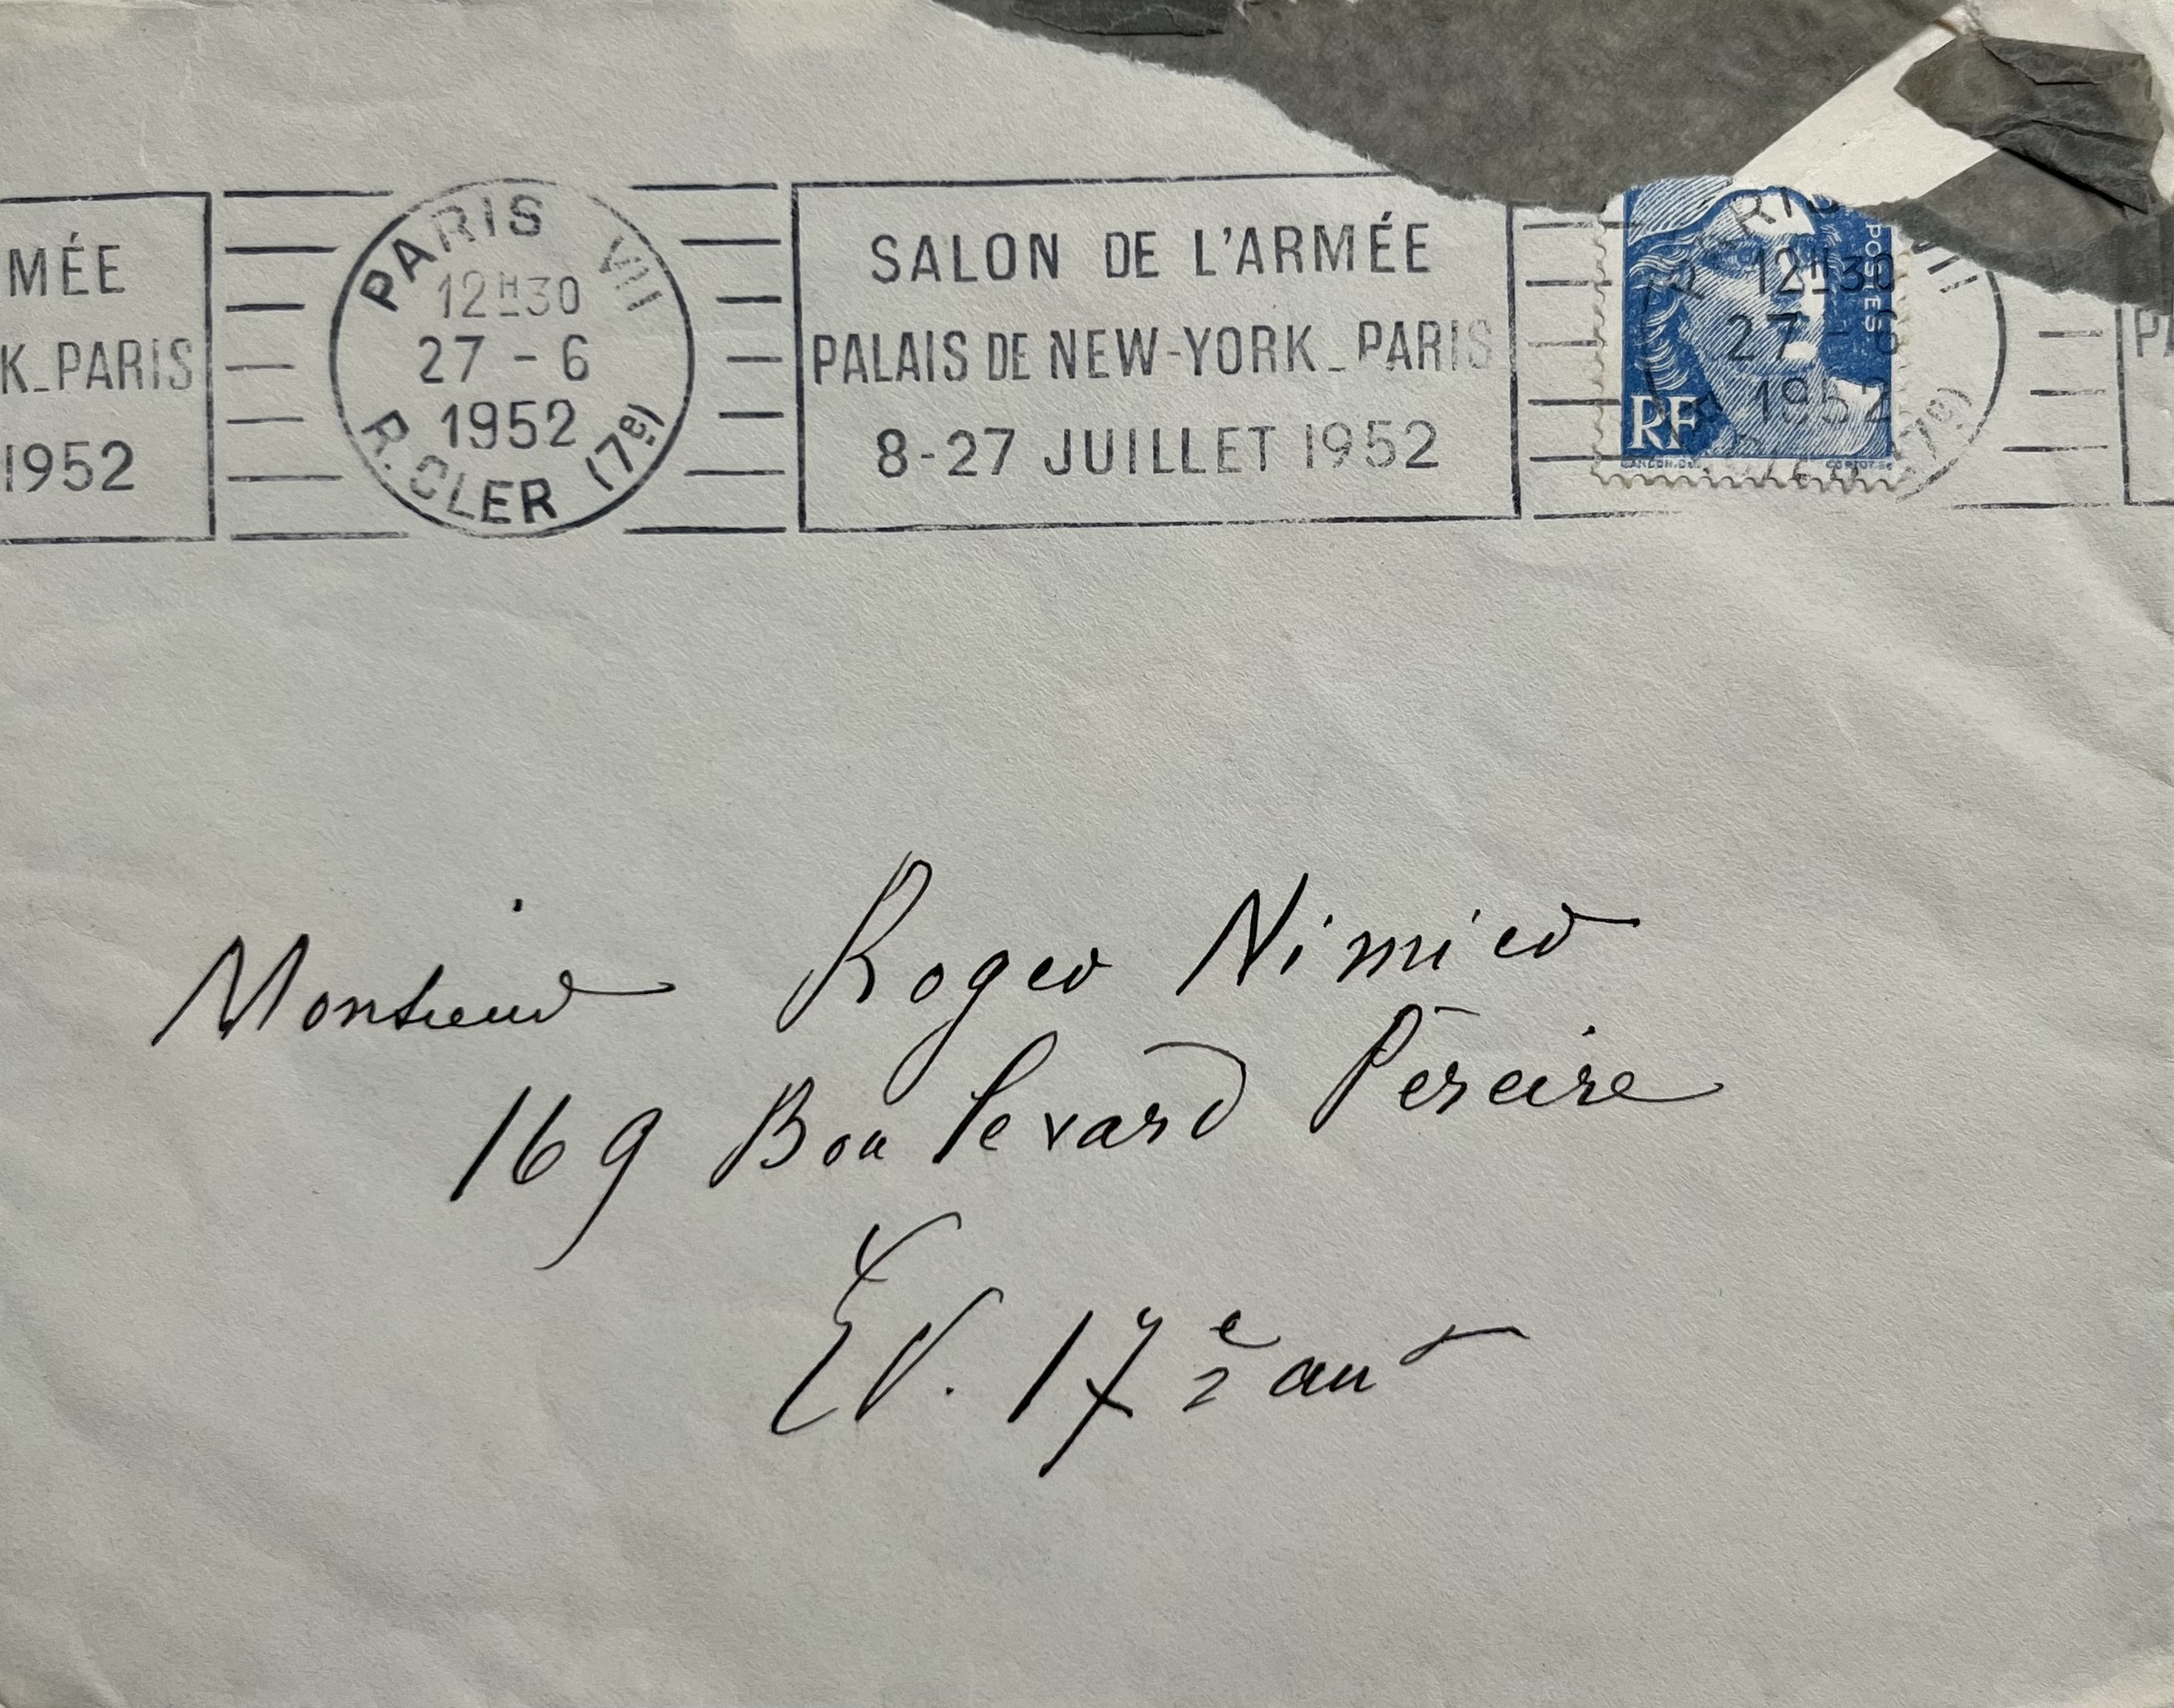 MÉE
K_PARIS
1952
PARIS VII
12H30
27-6
1952
R.CLER (7e)
SALON DE L'ARMÉE
PALAIS DE NEW-YORK_PARIS
8-27 JUILLET 1952
POSTES
RF
GANDON.DEL
CORTOT.SC
PARIS VII
12H30
27-6
1952
R.CLER (7e)
PA
Monsieur Roger Nimier
169 Boulevard Péreire
EV. 17e arrt